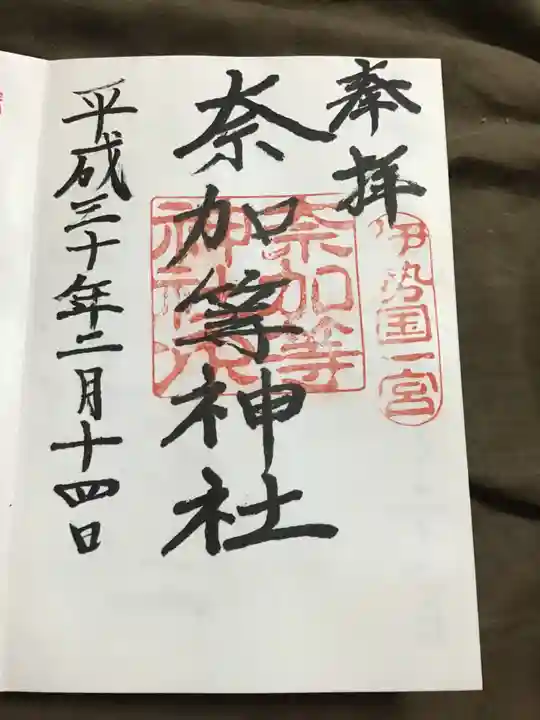 奉拝
伊勢国一宮
奈加等神社
奈加等
神社
平成三十年二月十四日